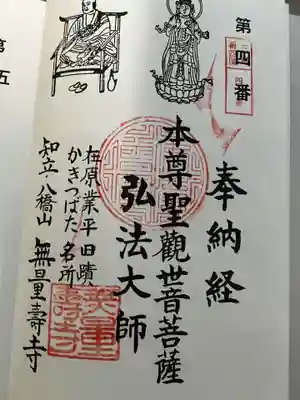 第四番
奉納経
本尊聖觀世音菩薩
弘法大師
在原業平旧蹟
かきつばた名所
知立八橋山無量壽寺
無量壽寺
第五